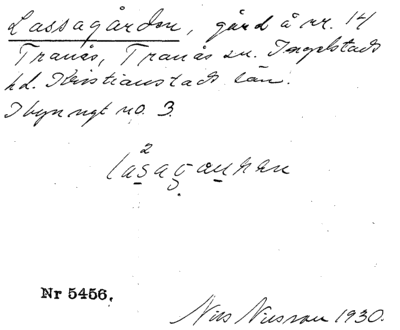 Lassagården, gård å nr. 14
Tranås, Tranås sn. Ingelstads
hd. Kristianstads län.
I byn ngt no. 3.
2
Nr 5456.
Nils Nilsson 1930.